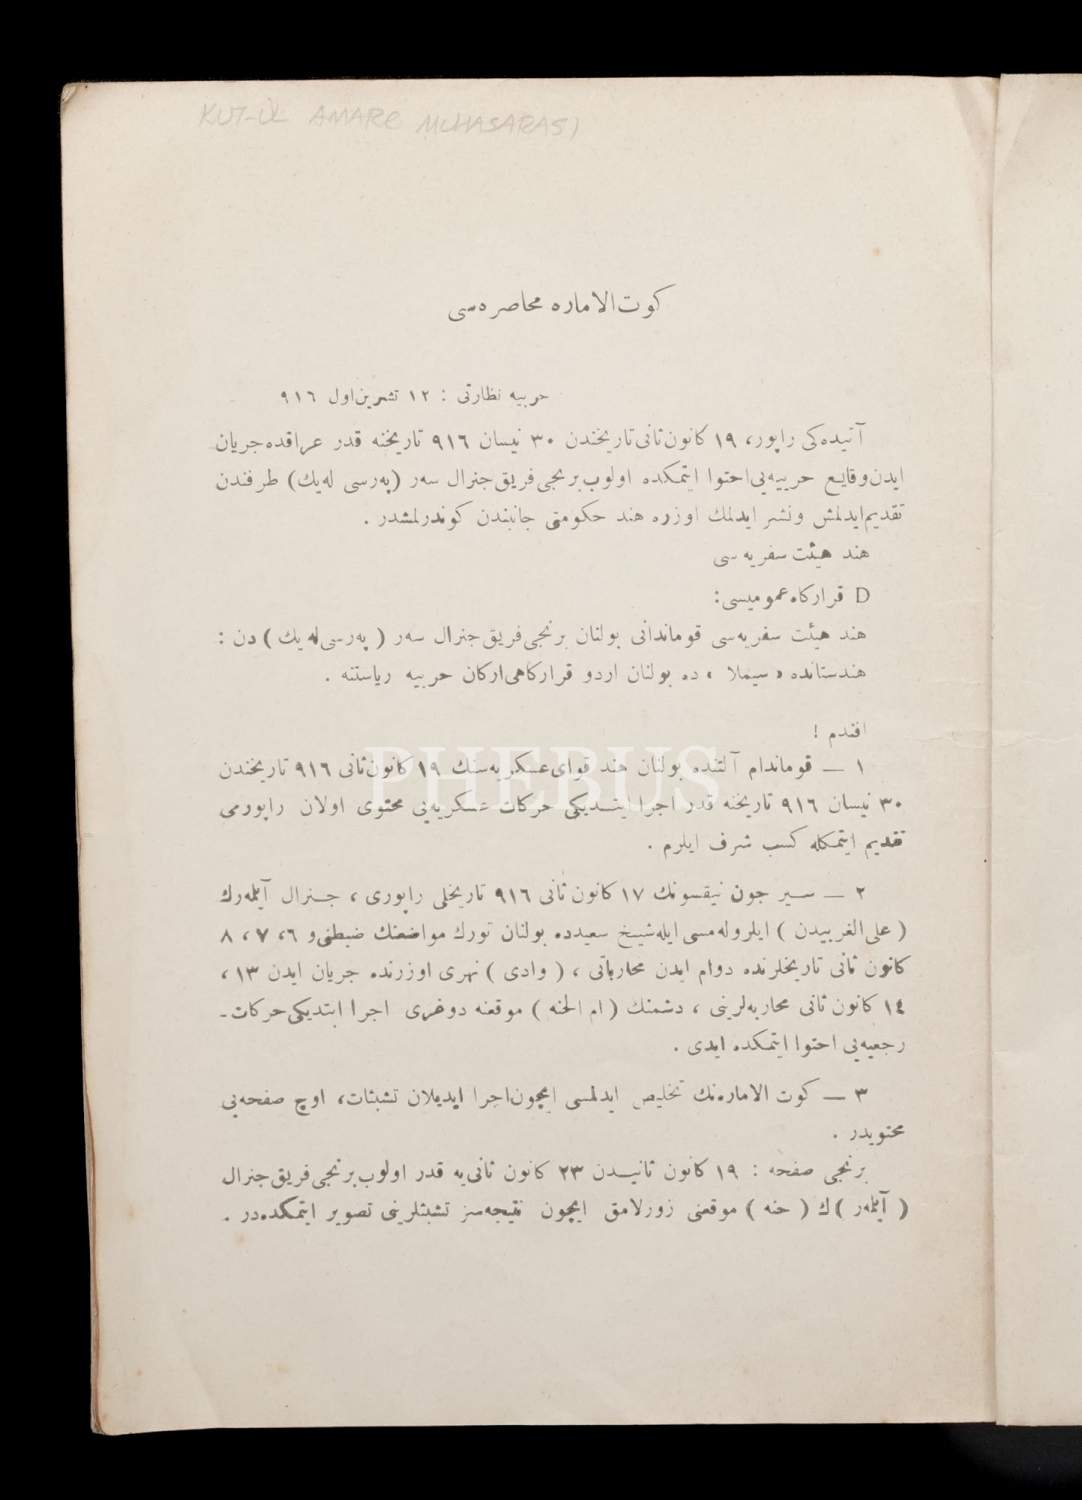 KUT-ÜL AMARE MUHASARASI
كوت‌الاماره محاصره‌سی
حربیه نظارتی : ١٢ تشرین‌اول ٩١٦
آتیده‌كی راپور، ١٩ كانون‌ثانی‌تاریخندن ٣٠ نیسان ٩١٦ تاریخنه قدر عراقده‌جریان
ایدن‌وقایع حربیه‌یی‌احتوا ایتمكده اولوب‌برنجی‌فریق‌جنرال سه‌ر (په‌رسی له‌یك) طرفندن
تقدیم‌ایدلمش ونشر ایدلمك اوزره هند حكومتی جانبندن كوندرلمشدر .
هند هیئت سفریه سی
D قراركاه‌عمومیسی:
هند هیئت سفریه‌سی قوماندانی بولنان برنجی‌فریق‌جنرال سه‌ر ( په‌رسی‌له‌یك ) دن :
هندستانده « سیملا » ده بولنان اردو قراركاهی‌اركان حربیه ریاستنه .
افندم !
١ — قوماندام آلتنده بولنان هند قوای‌عسكریه‌سنك ١٩ كانون‌ثانی ٩١٦ تاریخندن
PHEBUS
٣٠ نیسان ٩١٦ تاریخنه قدر اجرا ایتـدیكی حركات عسكریه‌یی محتوی اولان راپورمی
تقدیم ایتمكله كسب شرف ایلرم .
٢ — سـیر جون نیقسونك ١٧ كانون ثانی ٩١٦ تاریخلی راپوری ، جـنرال آیلمه‌رك
( علی‌الغربیدن ) ایلروله‌مسی ایله‌شیخ سعیدده بولنان تورك مواضعنك ضبطنی‌و ٦، ٧ ، ٨
كانون ثانی تاریخلرنده دوام ایدن محارباتی ، ( وادی ) نهری اوزرنده جریان ایدن ١٣ ،
١٤ كانون ثانی محاربه‌لرینی ، دشمنك ( ام الحنه ) موقعنه دوغری اجرا ایتدیكی‌حركات-
رجعیه‌یی احتوا ایتمكده ایدی .
٣ — كوت الاماره‌نك تخلیص ایدلمسی ایچون‌اجرا ایدیلان تشبثات، اوچ صفحه‌یی
محتویدر .
برنجی صفحه : ١٩ كانون ثانیـدن ٢٣ كانون ثانی‌یه قدر اولوب‌برنجی‌فریق‌جنرال
( آیلمه‌ر ) ك ( حنه ) موقعنی زورلامق ایچون نتیجه‌سز تشبثلرینی تصویر ایتمكده‌در .